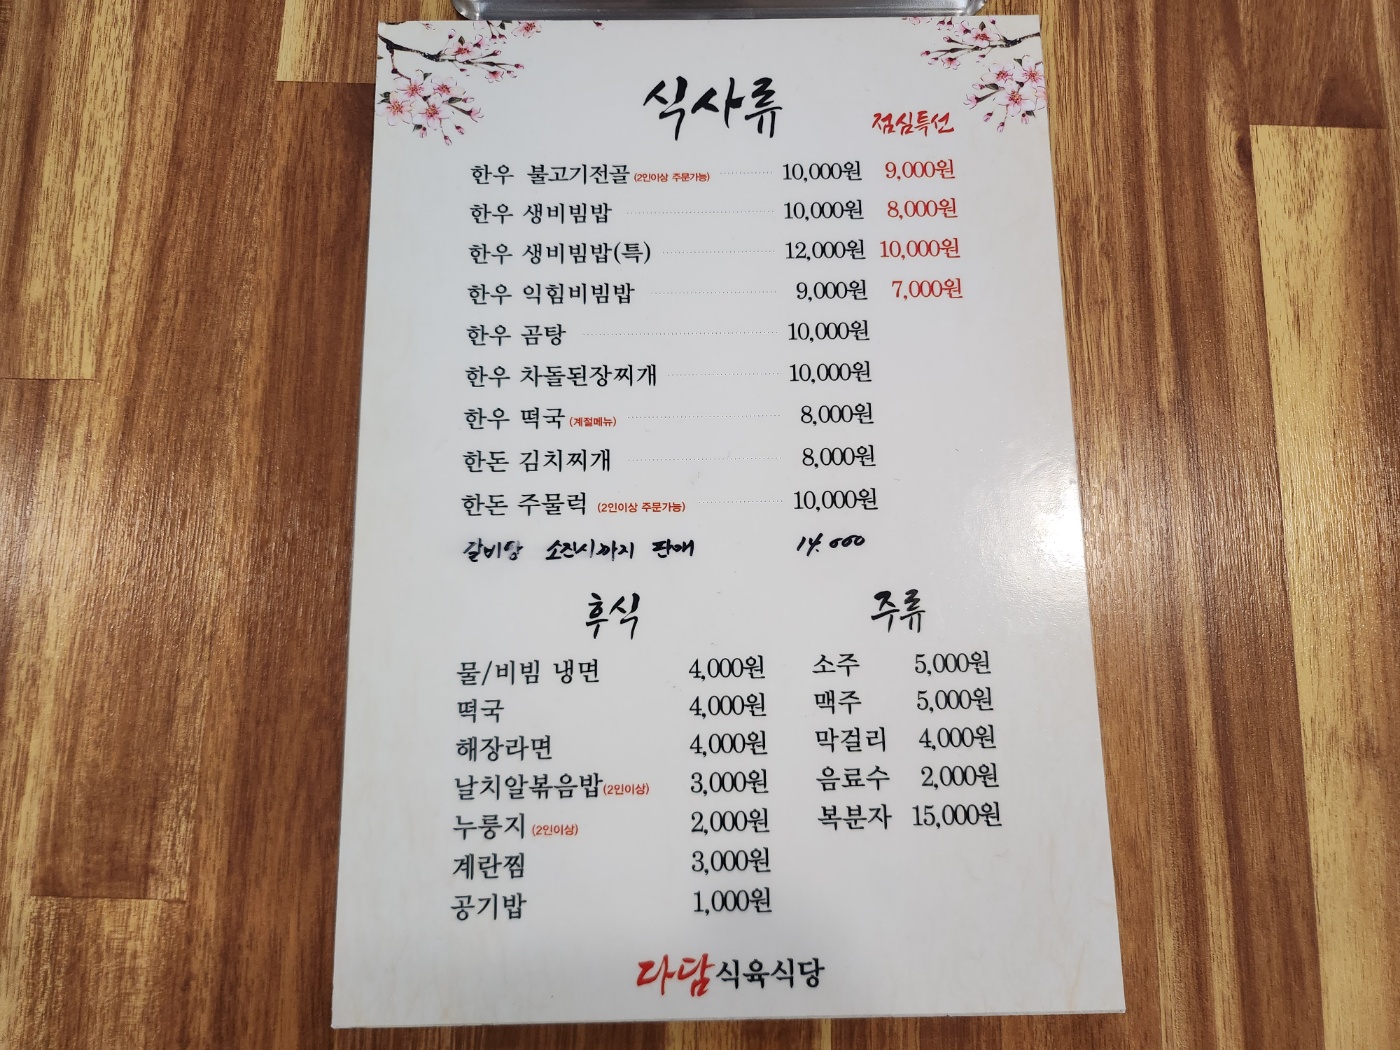 식사류
점심특선
한우 불고기전골 (2인이상 주문가능) 10,000원 9,000원
한우 생비빔밥 10,000원 8,000원
한우 생비빔밥(특) 12,000원 10,000원
한우 익힘비빔밥 9,000원 7,000원
한우 곰탕 10,000원
한우 차돌된장찌개 10,000원
한우 떡국 (계절메뉴) 8,000원
한돈 김치찌개 8,000원
한돈 주물럭 (2인이상 주문가능) 10,000원
갈비탕 소진시까지 판매 14.000
후식
물/비빔 냉면 4,000원
떡국 4,000원
해장라면 4,000원
날치알볶음밥(2인이상) 3,000원
누룽지 (2인이상) 2,000원
계란찜 3,000원
공기밥 1,000원
주류
소주 5,000원
맥주 5,000원
막걸리 4,000원
음료수 2,000원
복분자 15,000원
다담식육식당